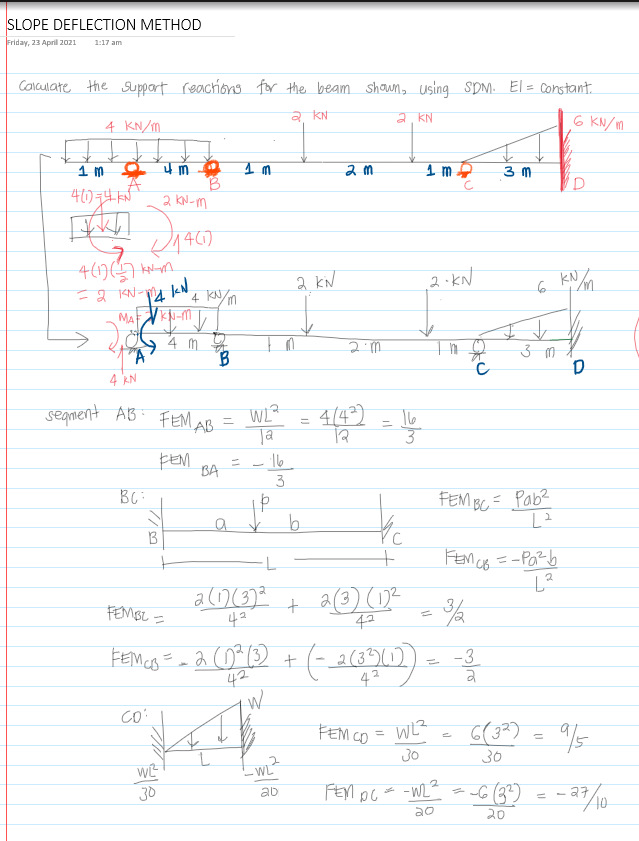 SLOPE DEFLECTION METHOD
Friday, 23 April 2021 1:17 am
Calculate the support reactions for the beam shown, using SDM. EI = constant.
2 KN 2 KN 6 KN/m
4 KN/m
1 m 4 m 1 m 2 m 1 m 3 m
A B C D
4(1)=4 KN 2 KN-m
4(1)
4(1)(1/2) KN-m
= 2 KN-m
4 KN 4 KN/m 2 KN 2·KN 6 KN/m
4 m 1 m 2·m 1 m 3 m
A B C D
4 KN
segment AB: FEM AB = WL²/12 = 4(4²)/12 = 16/3
FEM BA = -16/3
BC: P FEM BC = Pab²/L²
a b
B C
L FEM CB = -Pa²b/L²
FEM BC = 2(1)(3)²/4² + 2(3)(1)²/4² = 3/2
FEM CB = -2(1)²(3)/4² + (-2(3²)(1)/4²) = -3/2
CD: W
L
WL²/30 -WL²/20
FEM CD = WL²/30 = 6(3²)/30 = 9/5
FEM DC = -WL²/20 = -6(3²)/20 = -27/10